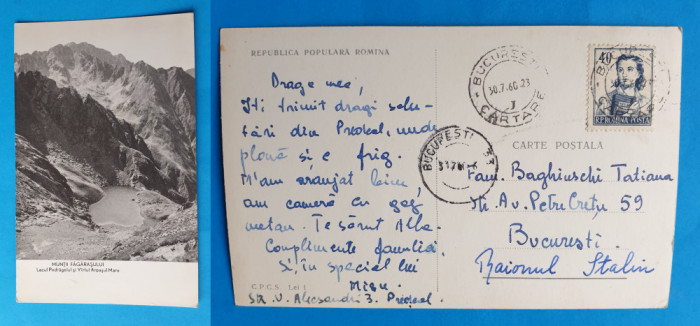 MUNȚII FĂGĂRAȘULUI
Lacul Podrăgelul și Vîrful Arpașul Mare
REPUBLICA POPULARA ROMINA
Drage mee,
Iți trimit dragi salu-
tări din Predeal, unde
plouă și e frig.
M'am aranjat bine,
am cameră cu gaz
metan. Te sărut Alba.
Complimente familiei
Și, în special lui
Mișu.
Str. V. Alecsandri 3. Predeal.
C.P.C.S. Lei 1
BUCUREȘTI
30.7.60.23
J
CARTARE
BUCUREȘTI
40
REP. ROMINA POSTA
CARTE POSTALA
Fam. Baghiuschi Tatiana
Str. Av. Petre Crețu 59
București
Raionul Stalin